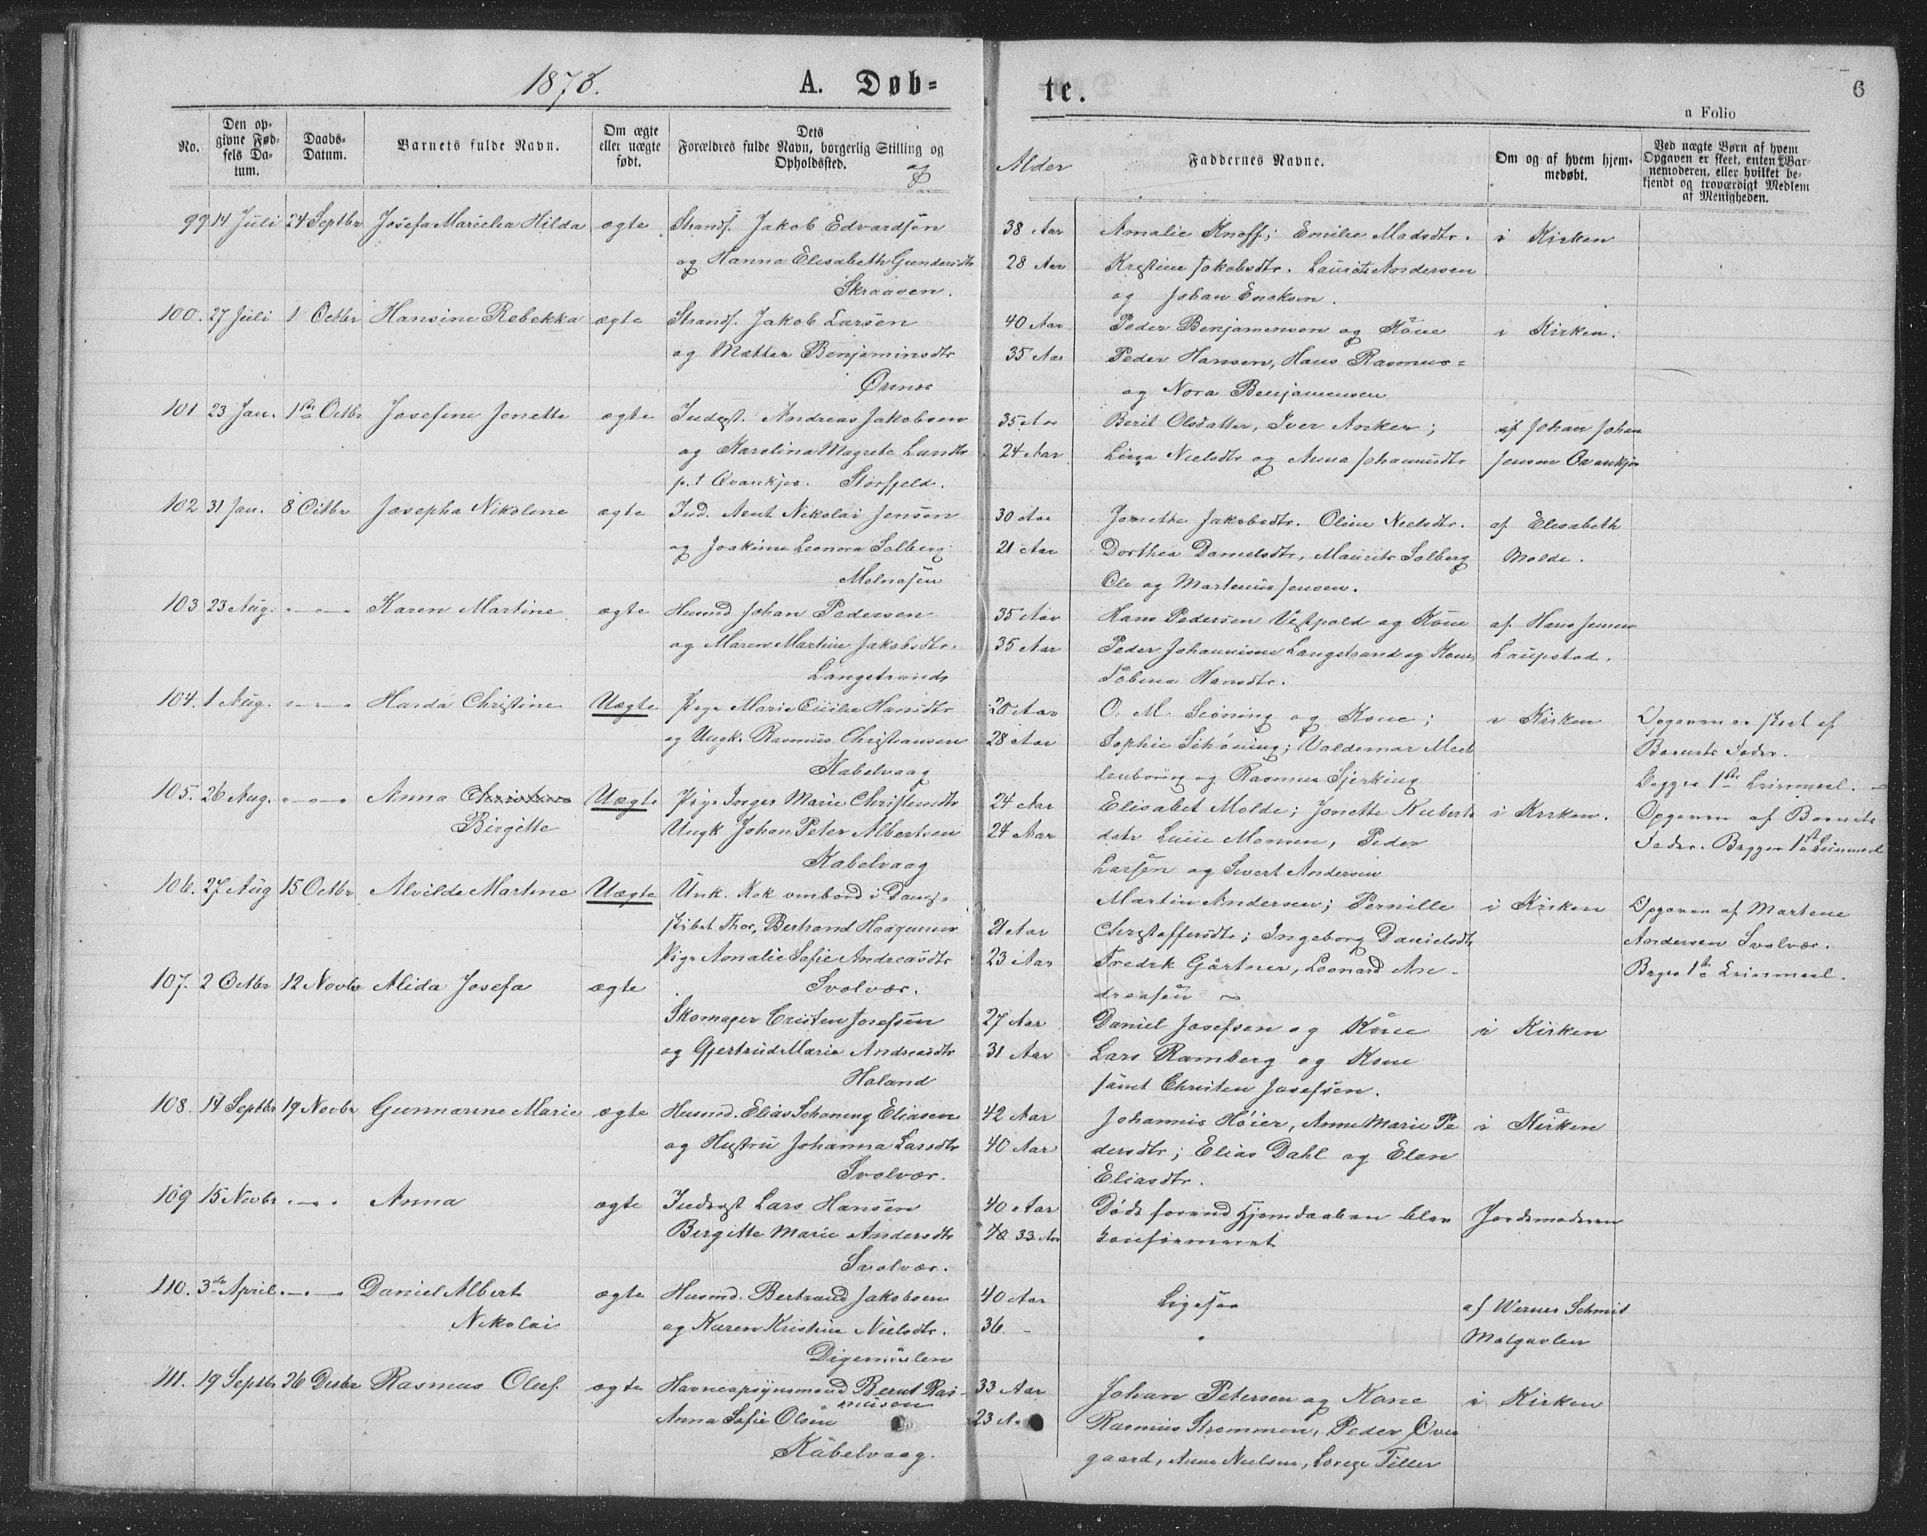 1878. A. Døb= te. 6
a Folio
No. | Den opgivne Fødsels Datum. | Daabs-Datum. | Barnets fulde Navn. | Om ægte eller uægte født. | Dets Forældres fulde Navn, borgerlig Stilling og Opholdssted. og | Alder | Faddernes Navne. | Om og af hvem hjemmedøbt. | Ved uægte Børn af hvem Opgaven er skeet, enten Barnemoderen, eller hvilket bekjendt og troværdigt Medlem af Menigheden.
99 14 Juli 24 Septbr Josefa Hilda ægte Strands. Jakob Edvardsen 38 Aar Amalie Knoff; Emilie Madsdtr. i Kirken
og Hanna Elisabeth Gundersdtr 28 Aar Kristine Jakobsdtr. Andersen
Skraaven. og Johan Eriksen.
100. 27 Juli 1 Octbr Hansine Rebekka ægte Strands. Jakob Larsen 40 Aar Peder Benjamensen og Kone i Kirken.
og Mætter Benjaminsdtr 35 Aar Peder Hansen, Hans Rasmus=
Ørsnes og Nora Benjamensen
101. 23 Jan. 1ste Octbr Josefine Jonette ægte Inderst. Andreas Jakobsen 35 Aar Berit Olsdatter, Iver Anker; af Johan Johan
og Karolina Magrete 24 Aar Lina Nielsdtr og Anna Johannisdtr Jensen
p.t. Storfjeld.
102 31 Jan. 8 Octbr Josepha Nikolene ægte Ind. Nikolai Jensen 30 Aar Jonette Jakobsdtr. Oline Nielsdtr. af Elisabeth
og Joakime Leonora Solberg 21 Aar Dorthea Danielsdtr, Maurits Solberg Molde.
Molnosen Ole og Martinus Jensen.
103 23 Aug. - - - Karen Martine ægte Husmd Johan Pedersen 35 Aar Hans Pedersen Vestpold og Kone af Hans Jensen
og Maren Martine Jakobsdtr. 35 Aar Peder Johannisen Langstrand og Kone, Laupstad.
Langstrand Hansdtr.
104. 1 Aug. - - - Harda Christine Uægte Pige Marie Hansdtr 20 Aar O. M. Siøning og Kone; i Kirken Opgaven er skeet af
og Ungk. Rasmus Christiansen 28 Aar Sophie Schøning; Valdemar Meck Barnets Fader.
Kabelvaag lenbourg og Rasmus Sjerking Begges 1ste Leiermaal.
105. 26 Aug. - - - Anna Christine Uægte Pige Inger Marie Christensdtr 24 Aar Elisabet Molde; Jonette i Kirken. Opgaven af Barnets
Birgitte Ungk Johan Peter Albertsen 24 Aar dstr Monsen, Peder Fader. Begges 1ste Leiermaal
Kabelvaag Larsen og Sivert Andersen
106. 27 Aug 15 Octbr Alvilde Martine Uægte Unk. Kok ombord i Damp= Martin Andersen; Pernille i Kirken Opgaven af Martene
skibet Thor, Bertrand 21 Aar Christoffersdtr; Ingeborg Danielsdtr Andersen Svolvær.
Pige Amalie Sofie Andreasdtr 23 Aar Fredrk Gärtner, Leonard An- Begges 1ste Leiermaal.
Svolvær. dreasen
107. 2 Octbr 12 Novbr Alida Josefa ægte
Skomager Cristen Josefsen 27 Aar Daniel Josefsen og Kone i Kirken
og Gjertrud Marie Andreasdtr 31 Aar Lars Ramberg og Kone
Holand samt Christen Josefsen.
108. 14 Septbr 19 Novbr Gunnarine Marie ægte Husmd. Elias Schoning Eliasen 42 Aar Johannis Høier, Anne Marie Pe i Kirken
og Hustru Johanna Larsdtr 40 Aar dersdtr; Elias Dahl og Elen
Svolvær. Eliasdtr.
109 15 Novbr - - Anna ægte Inderst Lars Hansen 40 Aar Døde forend Hjemdaaben blev Jordemoderen
Bergitte Marie Andersdtr 33 Aar konfirmeret
Svolvær.
110. 3die April - - - Daniel Albert ægte Husmd. Bertrand Jakobsen 40 Aar Ligesaa af Werner Schmit
Nikolai og Karen Kristine Nielsdtr. 36. -
Digermulen
111. 19 Septbr 26 Decbr Rasmus Oluf. ægte Havneopsynsmand Bernt Ras- 33 Aar Johan Petersen og Kone i Kirken
musen
Anna Sofie Olsen 23 Rasmus Strommen, Peder Over
Kabelvaag. gaard, Anne Nielsen, Tiller